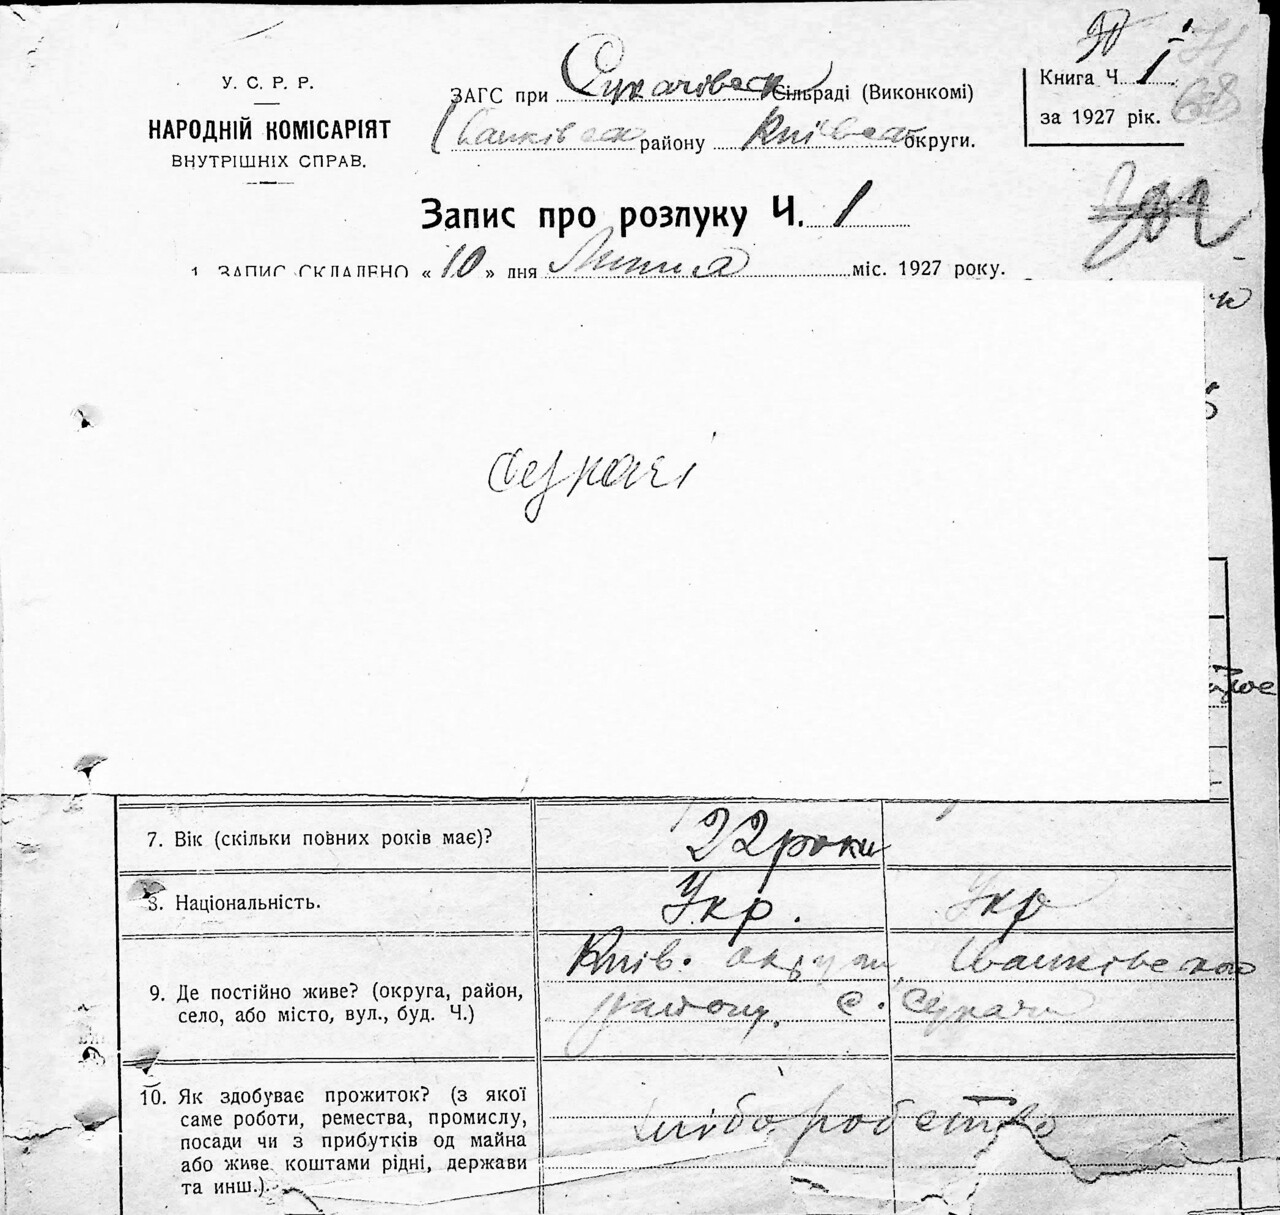 У. С. Р. Р.
НАРОДНІЙ КОМІСАРІЯТ
ВНУТРІШНІХ СПРАВ.
ЗАГС при Сукачівськ Сільраді (Виконкомі)
Іванківсько району Київська округи.
Книга Ч. 1
за 1927 рік.
68
Запис про розлуку Ч. 1
1. ЗАПИС СКЛАДЕНО «10» дня Липня міс. 1927 року.
Сукачі
7. Вік (скільки повних років має)?
22 роки
8. Національність.
Укр. Укр
9. Де постійно живе? (округа, район,
село, або місто, вул., буд. Ч.)
Київ. округи, Іванківського
району, с. Сукачи
10. Як здобуває прожиток? (з якої
саме роботи, ремества, промислу,
посади чи з прибутків од майна
або живе коштами рідні, держави
та инш.).
хліборобство